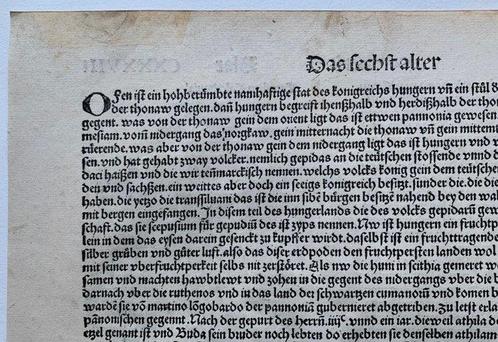 Das sechst alter
Ofen ist ein hohberümbte namhaftige stat des königreichs hungern vn̄ ein stůl
der thonaw gelegen. dan̄ hungern begreift ihenßhalb vnd herdißhalb der
gegent. was von der thonaw gein dem orient ligt das ist ettwen pannonia gewesen
mesiam. vom̄ nidergang das norgkaw. gein mitternacht die thonaw vn̄ gein
rürende. was aber von der thonaw gein dem nidergang ligt das ist hungern vnd
sen. vnd hat gehabt zway volcker. nemlich gepidas an die teütschen stossende vnnd
daci haißen vnd die wir tennmarckisch nennen. welchs volcks könig gein dem
den vnd sachßen. ein weittes aber doch ein seeigs konigreich besitzt. sunder die. die
haben. die yetzo die transsiluani das ist die inn sibē bürgen besitzē nahend bey den
mit bergen eingefangen. In disem teil des hungerlands die des volcks gepidarū
schaft. das sie scepusium für gepudiū des ist zyps nennen. Nw ist hungern ein
lein in dem das eysen darein gesenckt zu kupffer wirdt. daselbst ist ein
silber gruben vnd gůter luft. also das diser erdpoden den fruchtpersten landen
mit seiner vberfruchtperkeit selbs nit zerstöret. Als nw die huni in scithia gemeret
samen vnd machten hawbtlewt vnd zohen in die gegent des nidergangs vber die
darnach vber die ruthenos vnd in das land der schwartzen cumanorū vnd komen
wardē sie vō martino lōgobardo der pannoniā gubernieret abgetriben. Zu letst
pānonischen gegennt. Nach der gepurt des herrn̄. iiijᶜ. vnnd ein iar. dieweil athila
etzel genant ist vnd Buda sein bruder noch lebten do erhieben sie denselben